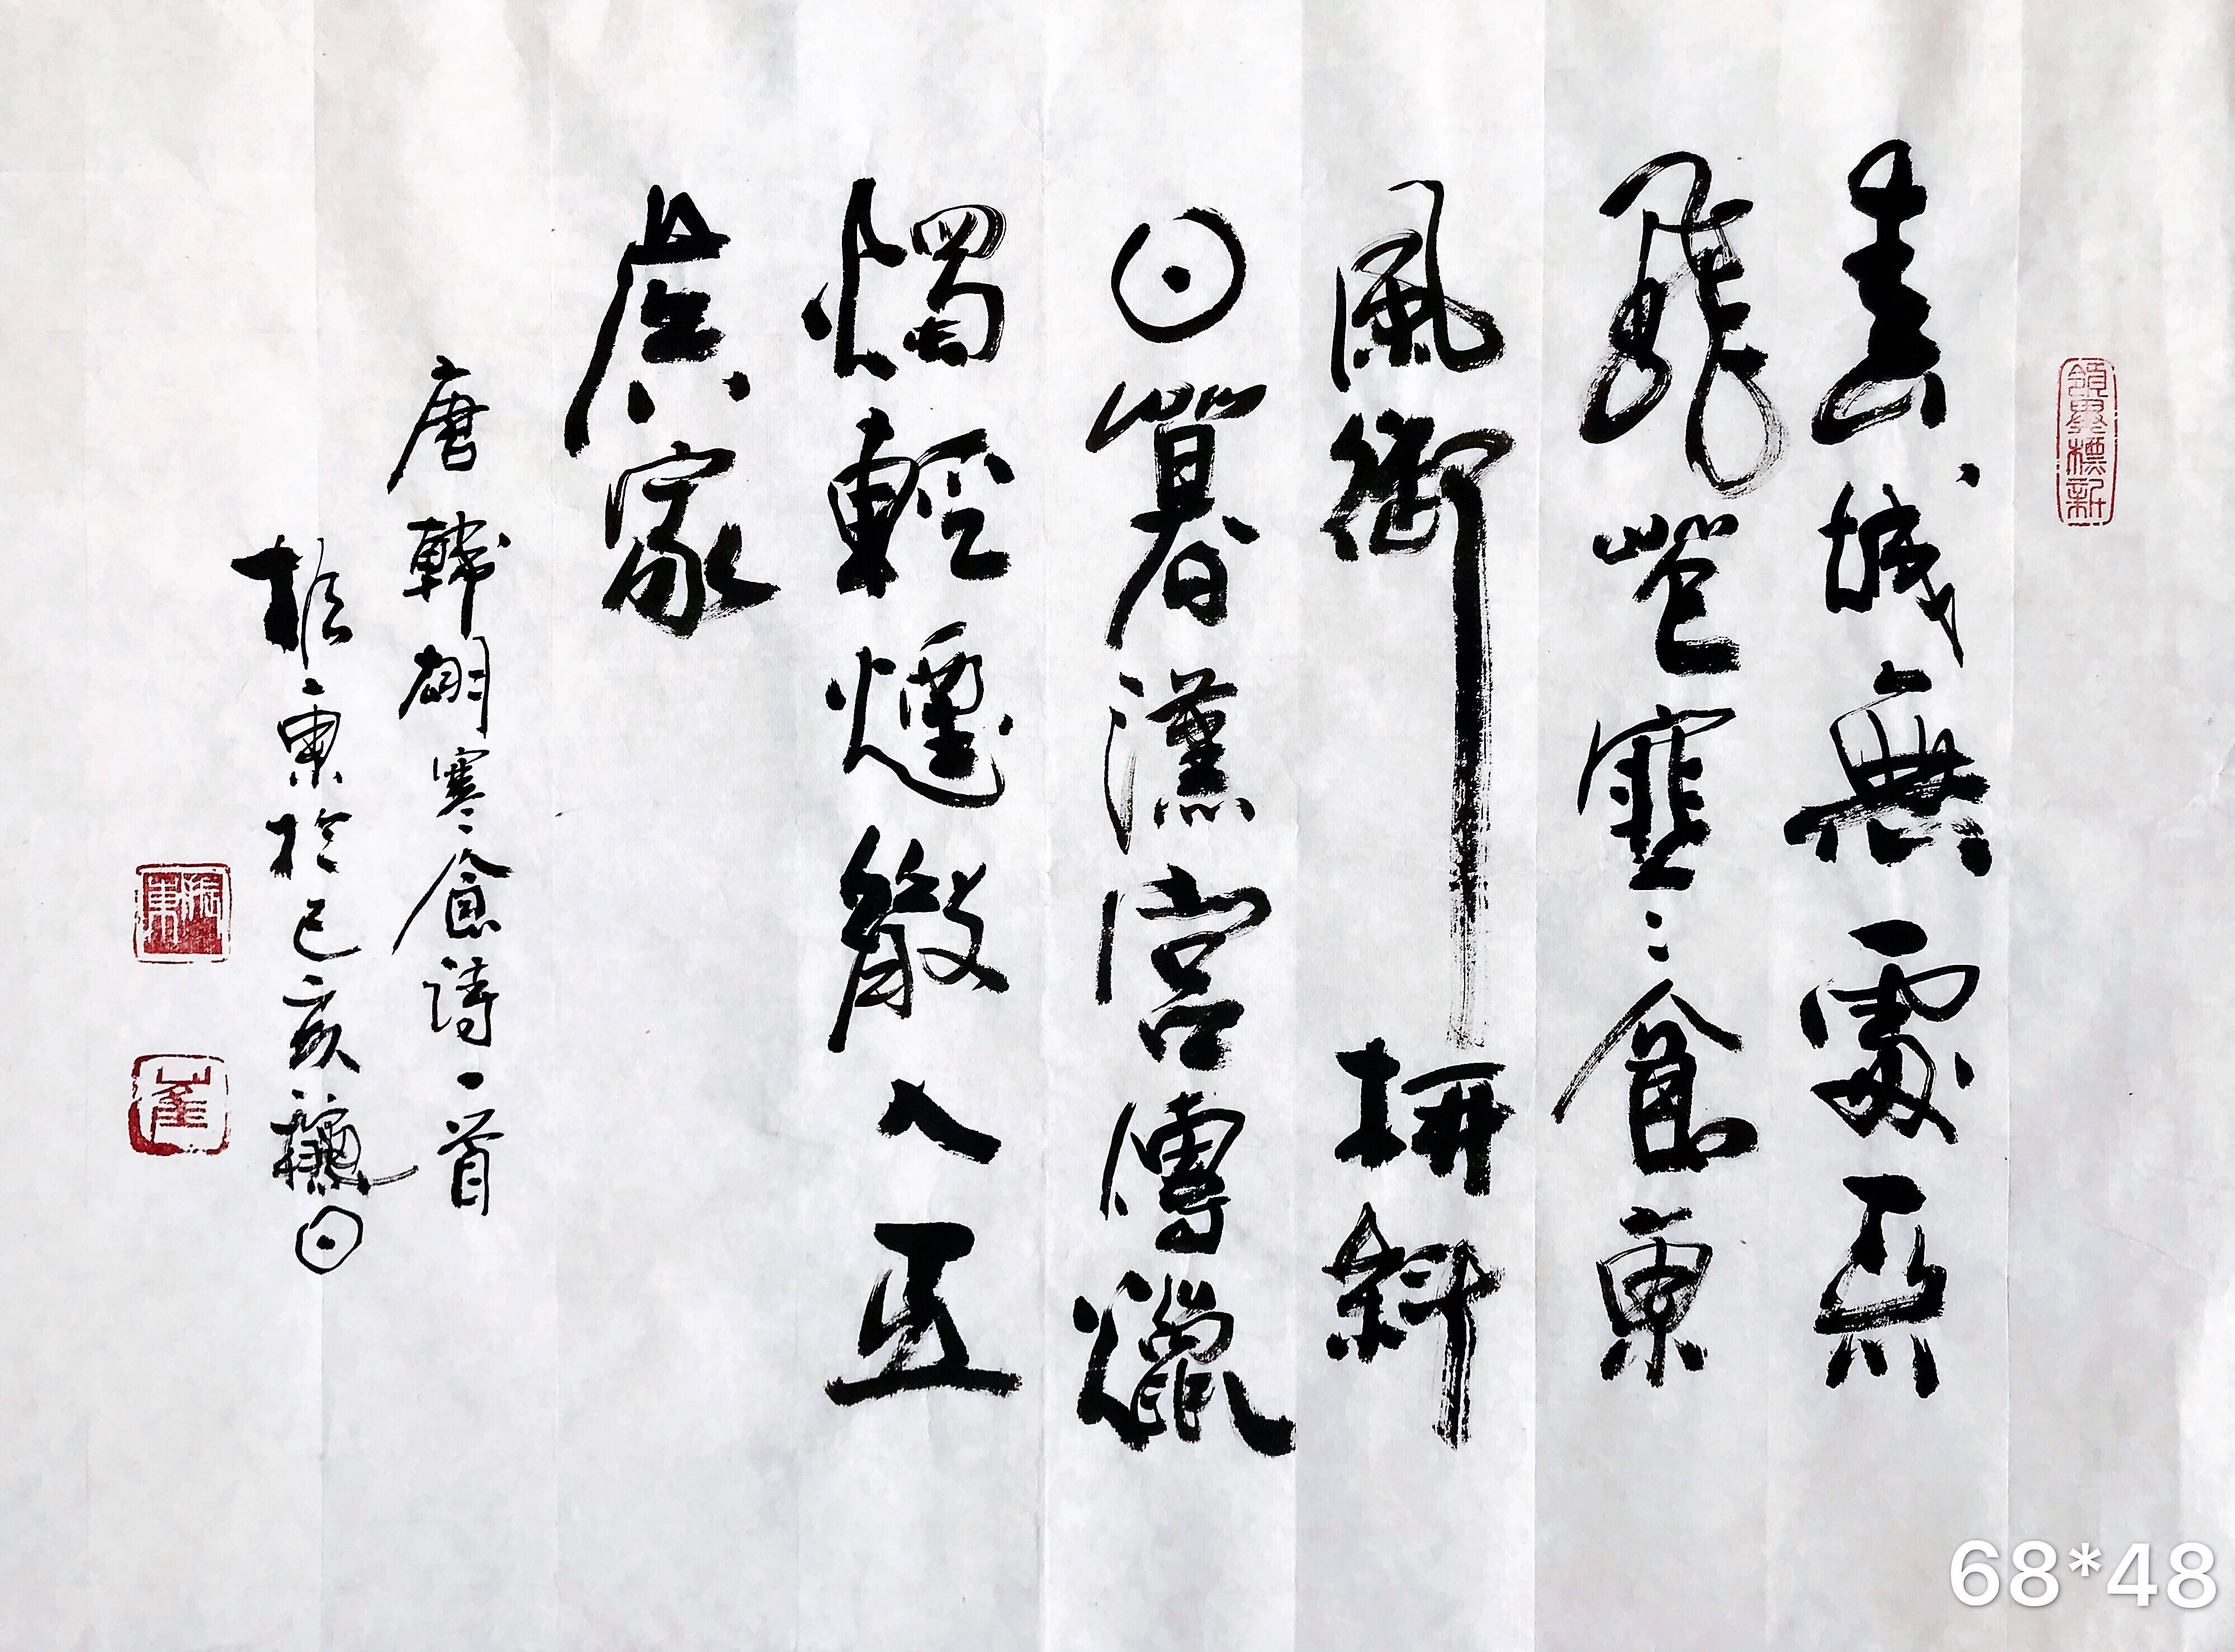 領異標新
春城無處不
飛花寒食東
風御柳斜
日暮漢宮傳蠟
燭輕煙散入五
侯家
唐韓翃寒食詩一首
振東於己亥秋日
振東
崔
68*48